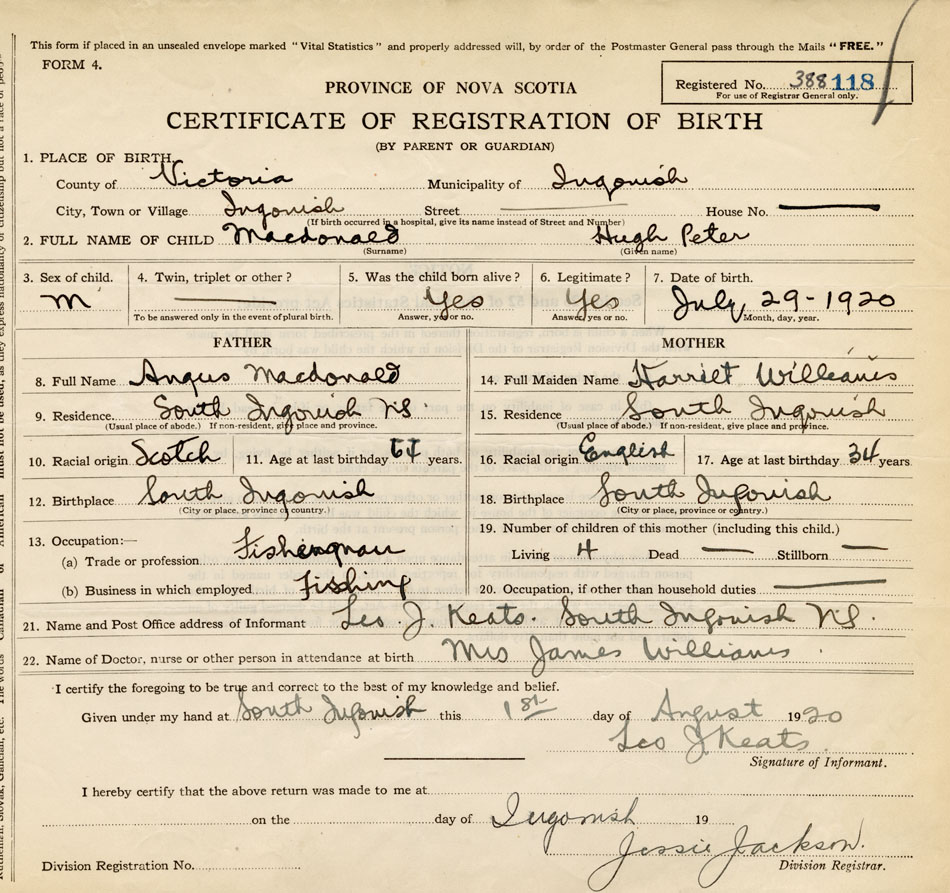 This form if placed in an unsealed envelope marked "Vital Statistics" and properly addressed will, by order of the Postmaster General pass through the Mails "FREE."
FORM 4.
Registered No. 388 118
For use of Registrar General only.
PROVINCE OF NOVA SCOTIA
CERTIFICATE OF REGISTRATION OF BIRTH
(BY PARENT OR GUARDIAN)
1. PLACE OF BIRTH
County of Victoria Municipality of Ingonish
City, Town or Village Ingonish Street House No.
(If birth occurred in a hospital, give its name instead of Street and Number)
2. FULL NAME OF CHILD Macdonald Hugh Peter
(Surname) (Given name)
3. Sex of child. 4. Twin, triplet or other? 5. Was the child born alive? 6. Legitimate? 7. Date of birth.
M Yes Yes July 29-1920
To be answered only in the event of plural birth. Answer, yes or no. Answer, yes or no. Month, day, year.
FATHER MOTHER
8. Full Name Angus Macdonald 14. Full Maiden Name Harriet Williams
9. Residence. South Ingonish NS. 15. Residence South Ingonish
(Usual place of abode.) If non-resident, give place and province. (Usual place of abode.) If non-resident, give place and province.
10. Racial origin Scotch 11. Age at last birthday years. 16. Racial origin English 17. Age at last birthday 34 years.
12. Birthplace South Ingonish 18. Birthplace South Ingonish
(City or place, province or country.) (City or place, province or country.)
13. Occupation:— 19. Number of children of this mother (including this child.)
(a) Trade or profession Fisherman Living 4 Dead — Stillborn —
(b) Business in which employed Fishing 20. Occupation, if other than household duties
21. Name and Post Office address of Informant Leo. J. Keats. South Ingonish NS.
22. Name of Doctor, nurse or other person in attendance at birth Mrs James Williams.
I certify the foregoing to be true and correct to the best of my knowledge and belief.
Given under my hand at South Ingonish this 1st day of August 1920
Leo J Keats.
Signature of Informant.
I hereby certify that the above return was made to me at
on the day of Ingonish 19
Jessie Jackson.
Division Registration No. Division Registrar.